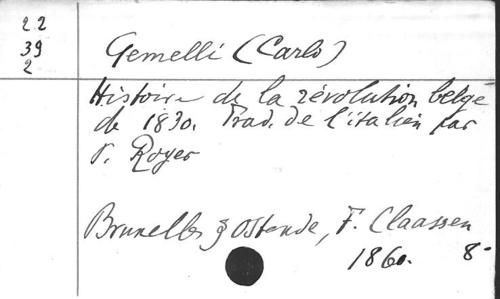 22
39
2
Gemelli (Carlo)
Histoire de la révolution belge
de 1830. Trad. de l'italien par
P. Royer
Bruxelles & Ostende, F. Claassen
1860. 8°